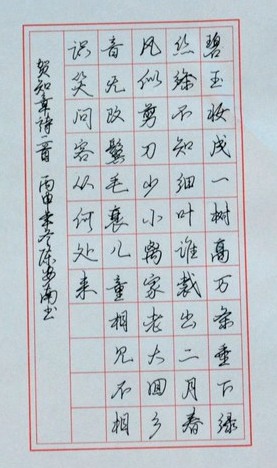 碧玉妆成一树高万条垂下绿
丝绦不知细叶谁裁出二月春
风似剪刀少小离家老大回乡
音无改鬓毛衰儿童相见不相
识笑问客从何处来
贺知章诗二首 丙申冬陈安南书